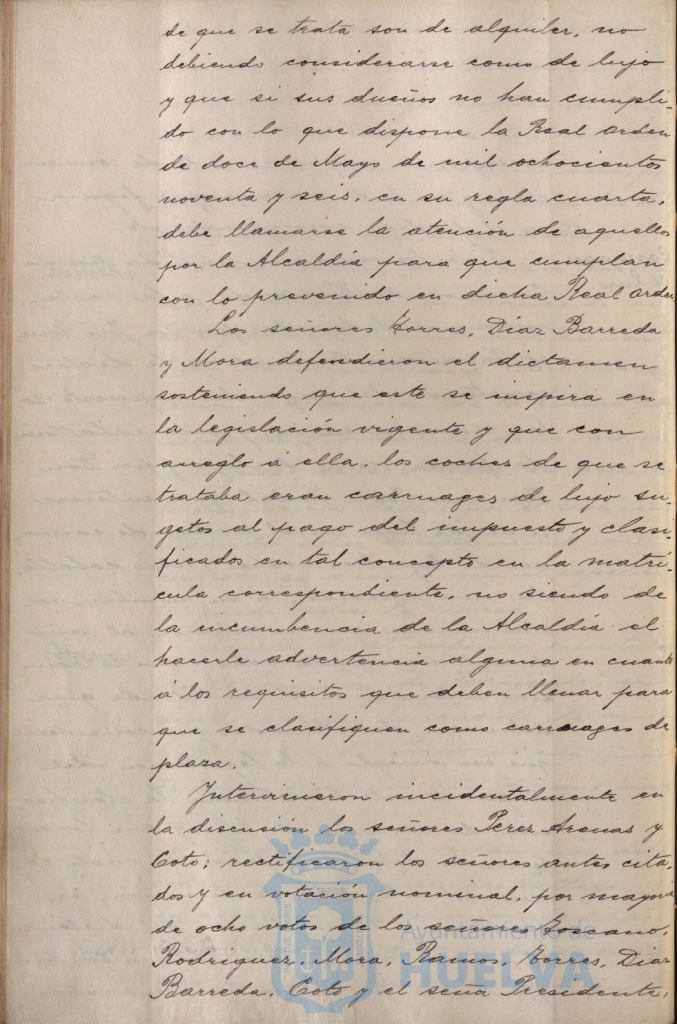 de que se trata son de alquiler, no
debiendo considerarse como de lujo
y que si sus dueños no han cumpli-
do con lo que dispone la Real orden
de doce de Mayo de mil ochocientos
noventa y seis, en su regla cuarta,
debe llamarse la atención de aquellos
por la Alcaldía para que cumplan
con lo prevenido en dicha Real orden.
Los señores Torres, Díaz Barreda
y Mora defendieron el dictamen
sosteniendo que este se inspira en
la legislación vigente y que con
arreglo á ella, los coches de que se
trataba eran carruages de lujo su-
getos al pago del impuesto y clasi-
ficados en tal concepto en la matrí-
cula correspondiente, no siendo de
la incumbencia de la Alcaldía el
hacerle advertencia alguna en cuanto
á los requisitos que deben llenar para
que se clasifiquen como carruages de
plaza.
Intervinieron incidentalmente en
la discusión los señores Perez Arenas y
Coto; rectificaron los señores antes cita-
dos y en votación nominal, por mayoria
de ocho votos de los señores Toscano,
Rodriguez, Mora, Ramos, Torres, Diaz
Barreda, Coto y el seña Presidente,
Ayuntamiento de
HUELVA